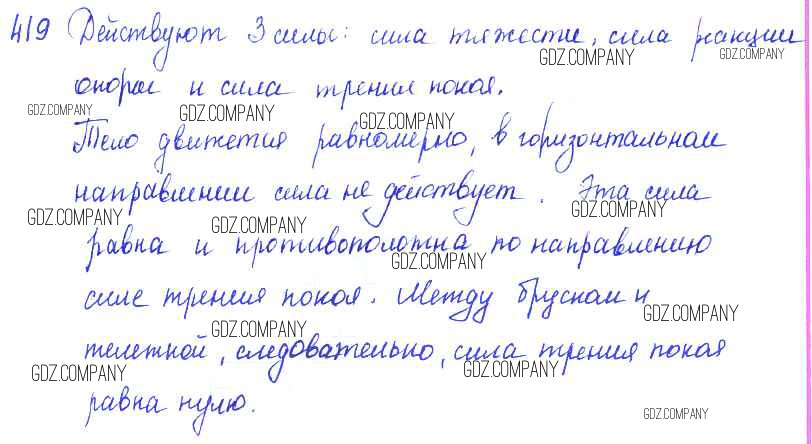 419 Действуют 3 силы: сила тяжести, сила реакции
GDZ.COMPANY GDZ.COMPANY
опоры и сила трения покоя.
GDZ.COMPANY GDZ.COMPANY GDZ.COMPANY
Тело движется равномерно, в горизонтальном
направлении сила не действует. Эта сила
GDZ.COMPANY GDZ.COMPANY GDZ.COMPANY
равна и противоположна по направлению
GDZ.COMPANY
силе трения покоя. Между бруском и
GDZ.COMPANY GDZ.COMPANY
тележкой, следовательно, сила трения покоя
GDZ.COMPANY GDZ.COMPANY
равна нулю.
GDZ.COMPANY